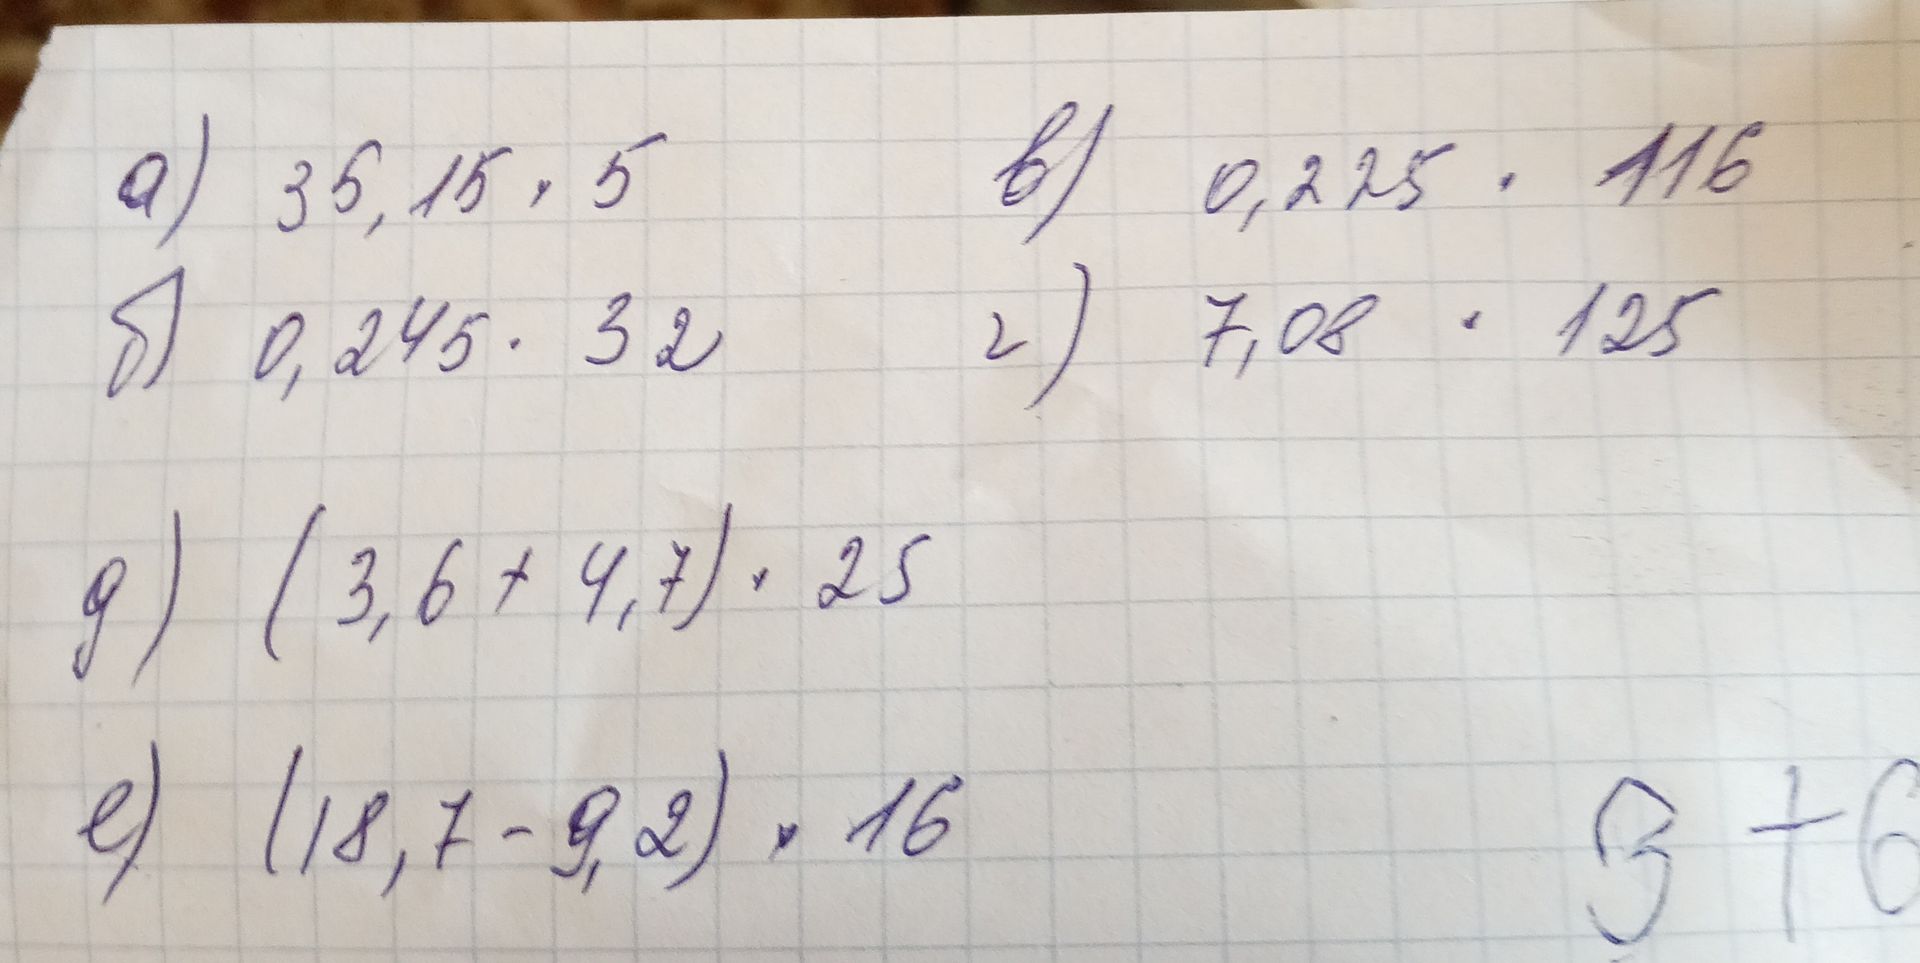 а) 35,15 · 5 в) 0,225 · 116
б) 0,245 · 32 г) 7,08 · 125
д) (3,6 + 4,7) · 25
е) (18,7 - 9,2) · 16
+6